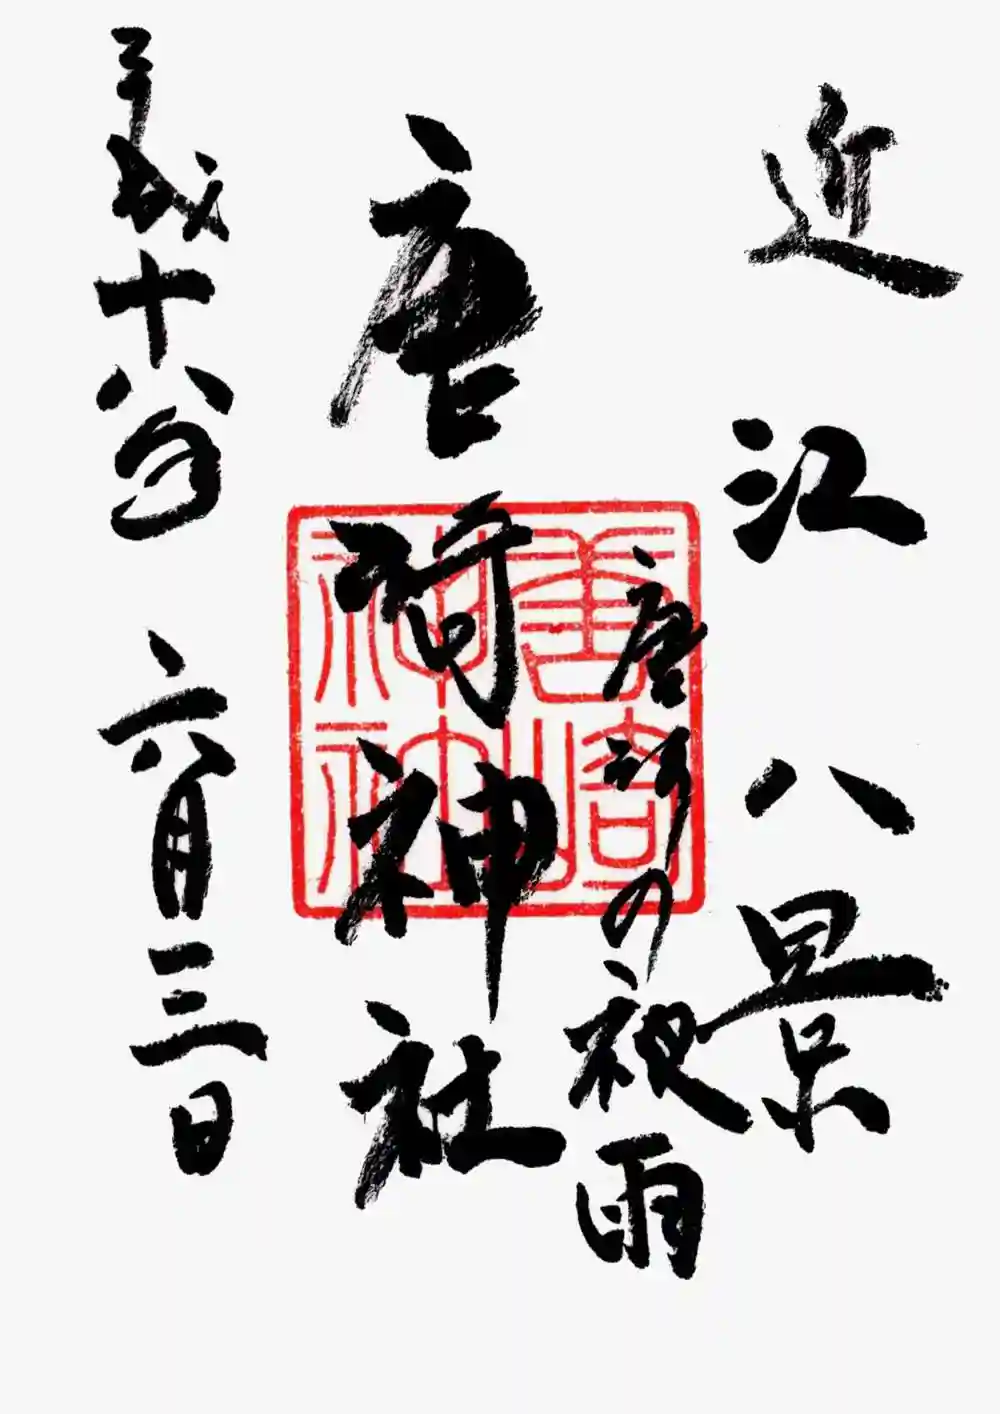 近江八景
唐崎の夜雨
唐崎神社
平成十八年六月三日
唐崎神社